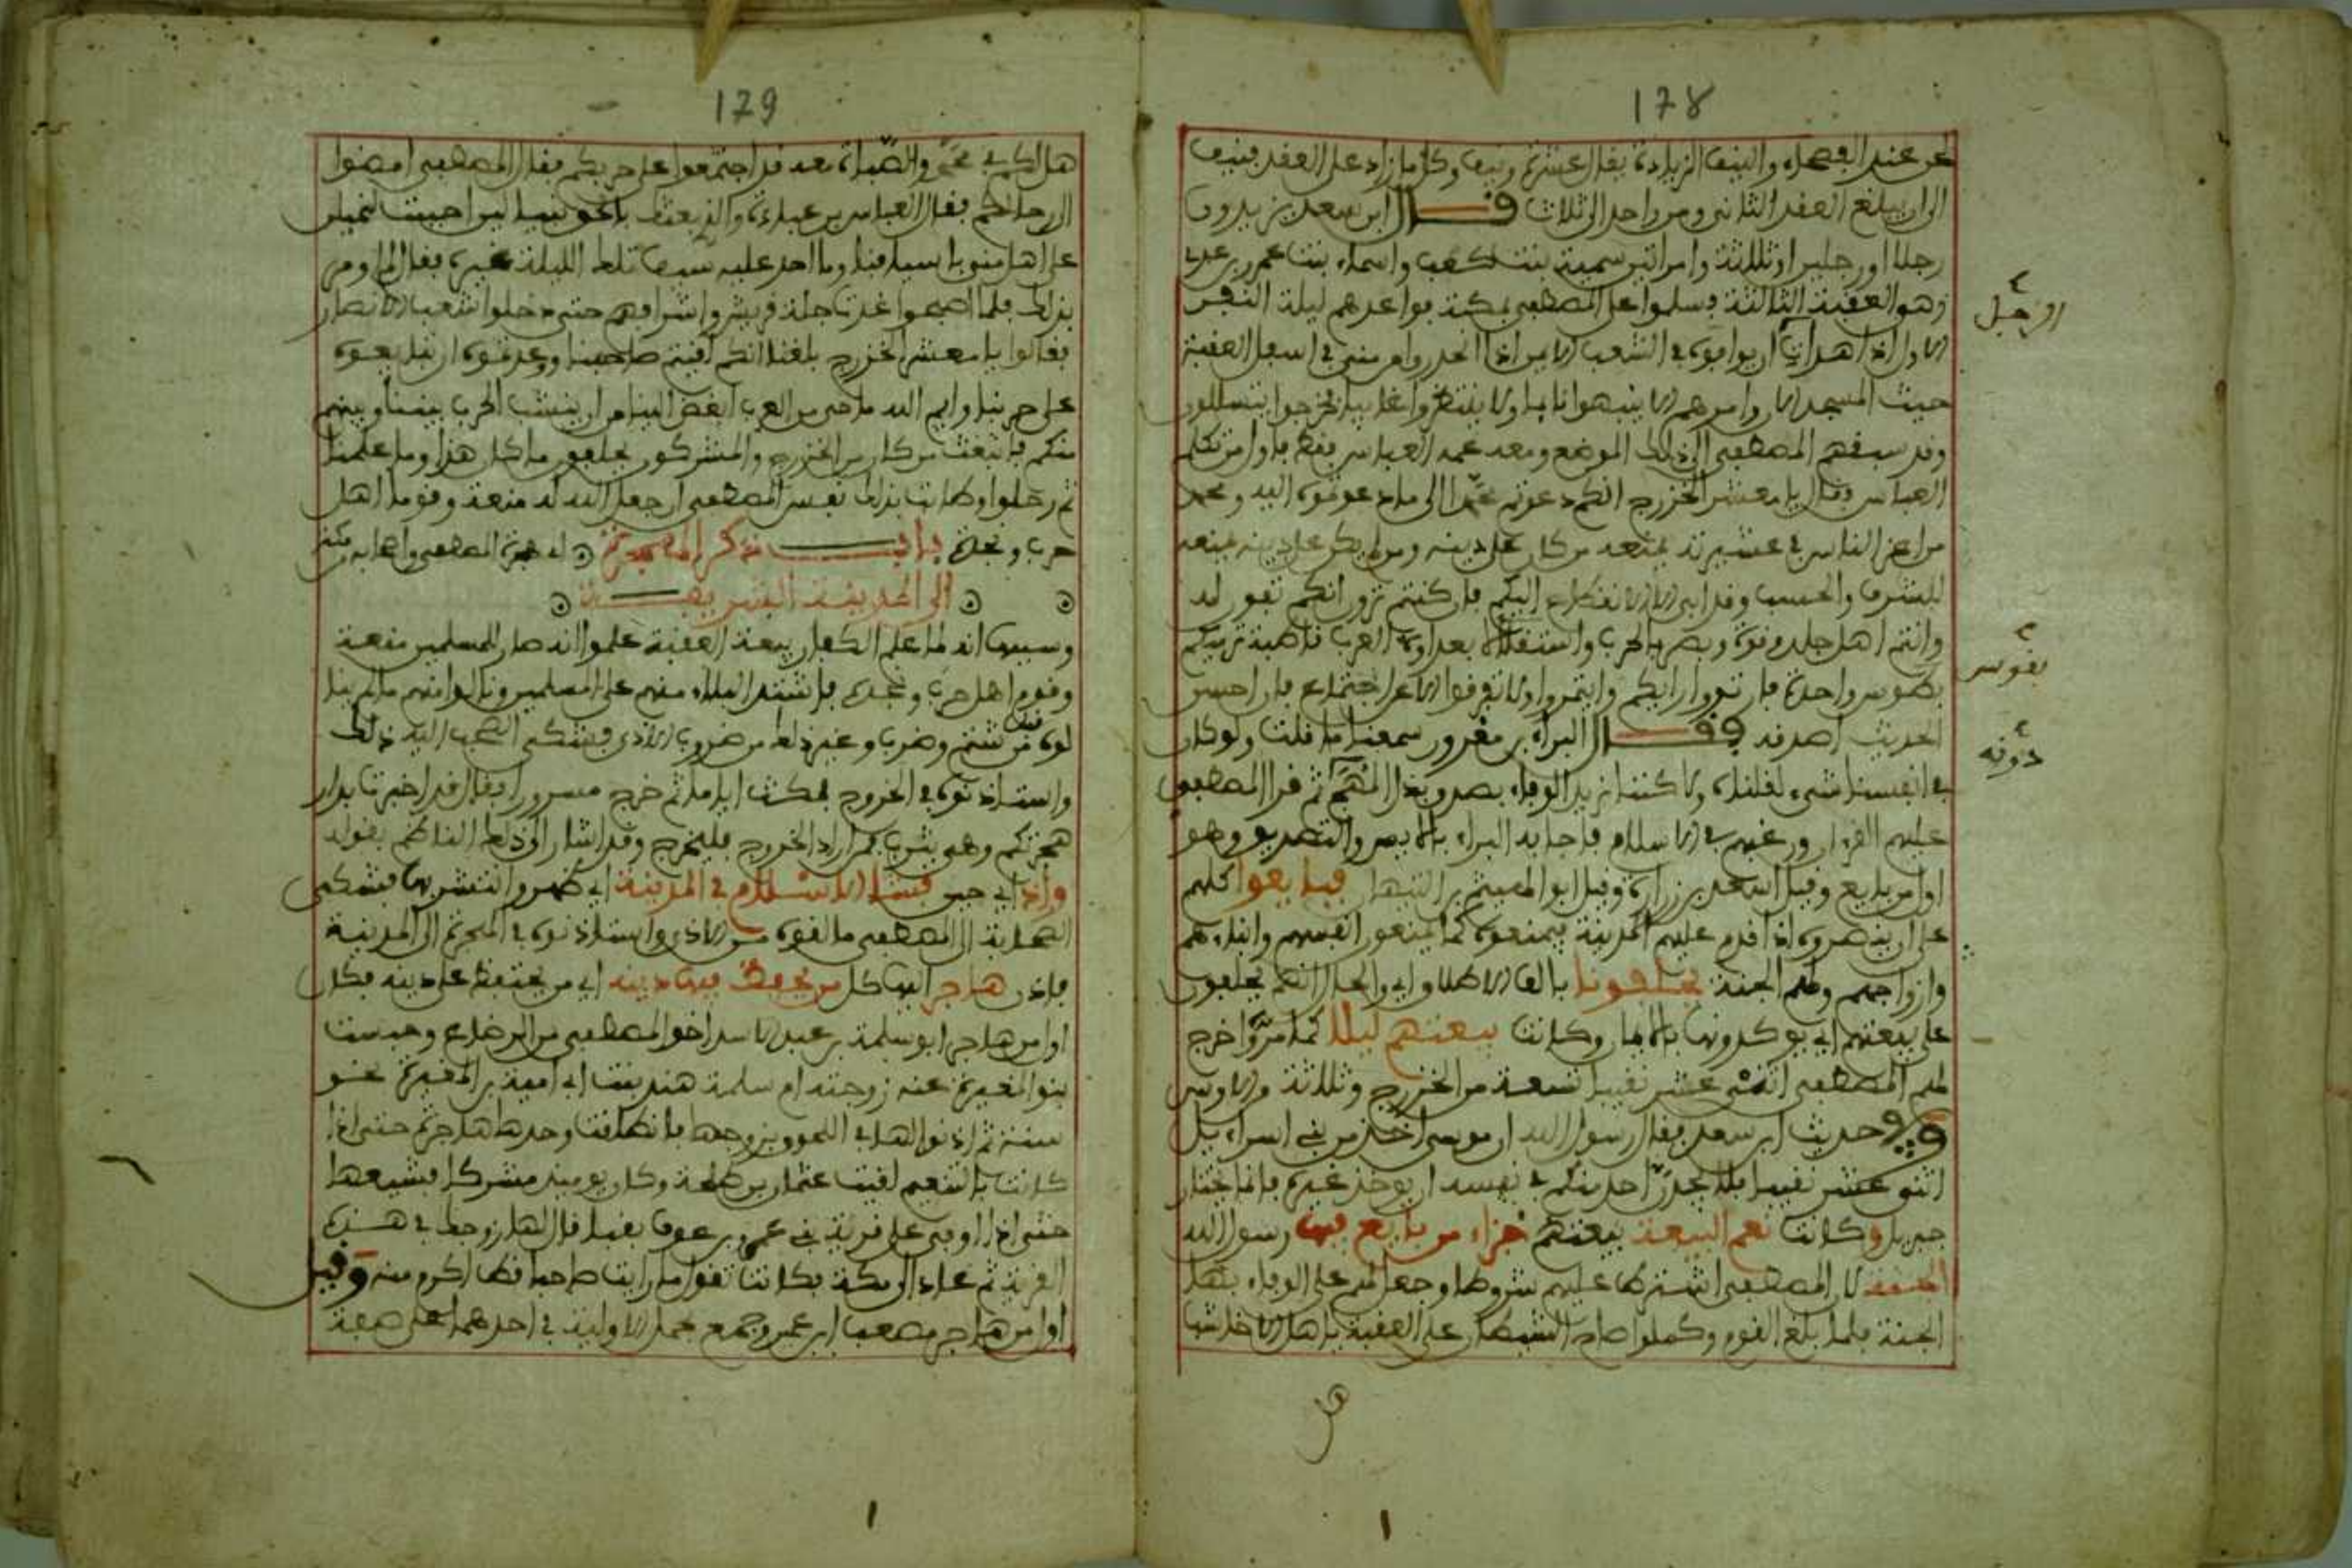 178
عند الفصحاء والنيف الزيادة يقال عشرة ونيف وكل ما زاد على العقد فنيف
الى ان يبلغ العقد الثاني ومن واحد الى ثلاث قال ابن سعد يزيدون
رجلا او رجلين او ثلاثة وامراتين سمية بنت كعب واسماء بنت عمرو بن عدي
وهو العقبة الثالثة فسلموا على المصطفى بمكة فواعدهم ليلة النفر
الاول اذا هدات ان يوافوه في الشعب الايمن اذا انحدروا من منى في اسفل العقبة
حيث المسجد الان وامرهم ان لا ينبهوا نايما ولا ينتظروا غايبا فخرجوا يتسللون
وقد سبقهم المصطفى الى ذلك الموضع ومعه عمه العباس فقط فاول من تكلم
العباس فقال يا معشر الخزرج انكم دعوتم محمدا الى ما دعوتموه اليه ومحمد
من اعز الناس في عشيرته يمنعه من كان على دينه ومن لم يكن على دينه يمنعه
للشرف والحسب وقد ابى الا الانقطاع اليكم فان كنتم ترون انكم تفون له
وانتم اهل جلد وقوة وبصر بالحرب واستقلال بعداوة العرب قاطبة ترميكم
بقوس واحدة فارتئوا رايكم وايتمروا ولا تفرقوا الا عن اجتماع فان احسن
الحديث اصدقه فقال البراء بن معرور سمعنا ما قلت ولو كان
في انفسنا شيء لقلناه ولا كنا نريد الوفاء بصدق بذل المهج ثم قرا المصطفى
عليهم القرءان ورغبهم في الاسلام فاجابه البراء بالايمان والتصديق وهو
اول من بايع وقيل اسعد بن زرارة وقيل ابو الهيثم بن التيهان فبايعوا كلهم
على ان ينصروه اذا قدم عليهم المدينة فيمنعوه كما يمنعون انفسهم وابناءهم
وازواجهم ولهم الجنة يحلفونا بالف الاطلاق اي والحال انهم يحلفون
على بيعتهم اي يوكدونها بالايمان وكانت بيعتهم ليلا كما مر واخرج
لهم المصطفى اثني عشر نقيبا تسعة من الخزرج وثلاثة من الاوس
وفي حديث ابن سعد فقال رسول الله ان موسى اخذ من بني اسراءيل
اثنى عشر نقيبا فلا يجدن احد منكم في نفسه ان يوخذ غيره فانما يختار
جبريل وكانت نعم البيعة بيعتهم جزاء من بايع فيها رسول الله
الجنة لان المصطفى اشترط عليهم شروطا وجعل لهم على الوفاء بتلك
الجنة فلما بلغ القوم وكملوا صاح الشيطان على العقبة يا اهل الاخاشب
هل
او رجل
بقوس
دونه
179
هل لكم في محمد والصباة معه قد اجتمعوا على حربكم فقال المصطفى امضوا
الى رحالكم فقال العباس بن عبادة والذي بعثك بالحق نبيا لين احببت لنميلن
على اهل منى باسيافنا وما احد عليه سيف تلك الليلة غيره فقال لم اومر
بذلك فلما اصبحوا غدت جلة قريش واشرافهم حتى دخلوا شعب الانصار
فقالوا يا معشر الخزرج بلغنا انكم لقيتم صاحبنا ووعدتموه ان تبايعوه
على حربنا وايم الله ما حي من العرب ابغض الينا من ان ينشب الحرب بيننا وبينهم
منكم فانبعث من كان من الخزرج والمشركون يحلفون ما كان هذا وما علمنا
ثم رحلوا وطابت بذلك نفس المصطفى ان جعل الله له منعة وقوما اهل
حرب ونجدة باب ذكر الهجرة اي هجرة المصطفى واصحابه من مكة
الى المدينة الشريفة
وسببها انه لما علم الكفار بيعة العقبة علموا انه صار للمسلمين منعة
وقوم اهل حرب ونجدة فاشتد البلاء منهم على المسلمين ونالوا منهم ما لم ينا
لوه من شتم وضرب وغير ذلك من ضروب الاذى فشكى الصحب اليه ذلك
واستاذنوه في الخروج فمكث اياما ثم خرج مسرورا فقال قد اخبرت بدار
هجرتكم وهي يثرب فمن اراد الخروج فليخرج وقد اشار الى ذلك الناظم بقوله
واذ اي حين فشا الاسلام في المدينة اي ظهر وانتشر بها فشكى
الصحابة الى المصطفى ما لقوه من الاذى واستاذنوه في الهجرة الى المدينة
فاذن هاجر اليها كل من يحفظ فيها دينه اي من يحتفظ على دينه فكان
اول من هاجر ابو سلمة بن عبد الاسد اخو المصطفى من الرضاع وحبست
بنو المغيرة عنه زوجته ام سلمة هند بنت ابي امية بن المغيرة نحو
سنة ثم اذنوا لها في اللحوق بزوجها فانطلقت وحدها مهاجرة حتى اذا
كانت بالتنعيم لقيت عثمان بن طلحة وكان يوميذ مشركا فشيعها
حتى اذا اوفى على قرية بني عمرو بن عوف بقبا قال لها زوجك في هذه
القرية ثم عاد الى مكة فكانت تقول ما رايت صاحبا قط اكرم منه وقيل
اول من هاجر مصعب ابن عمير وجمع بحمل الاولية في احدهما على صفة